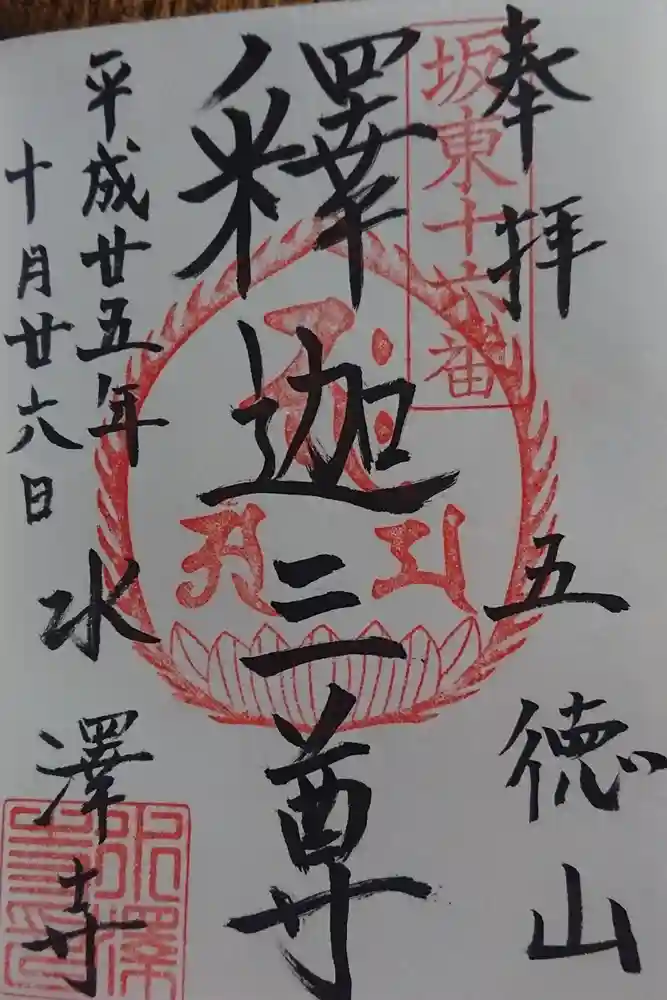 奉拝 五徳山
坂東十六番
釋迦三尊
平成廿五年
十月廿六日
水澤寺
水澤寺印